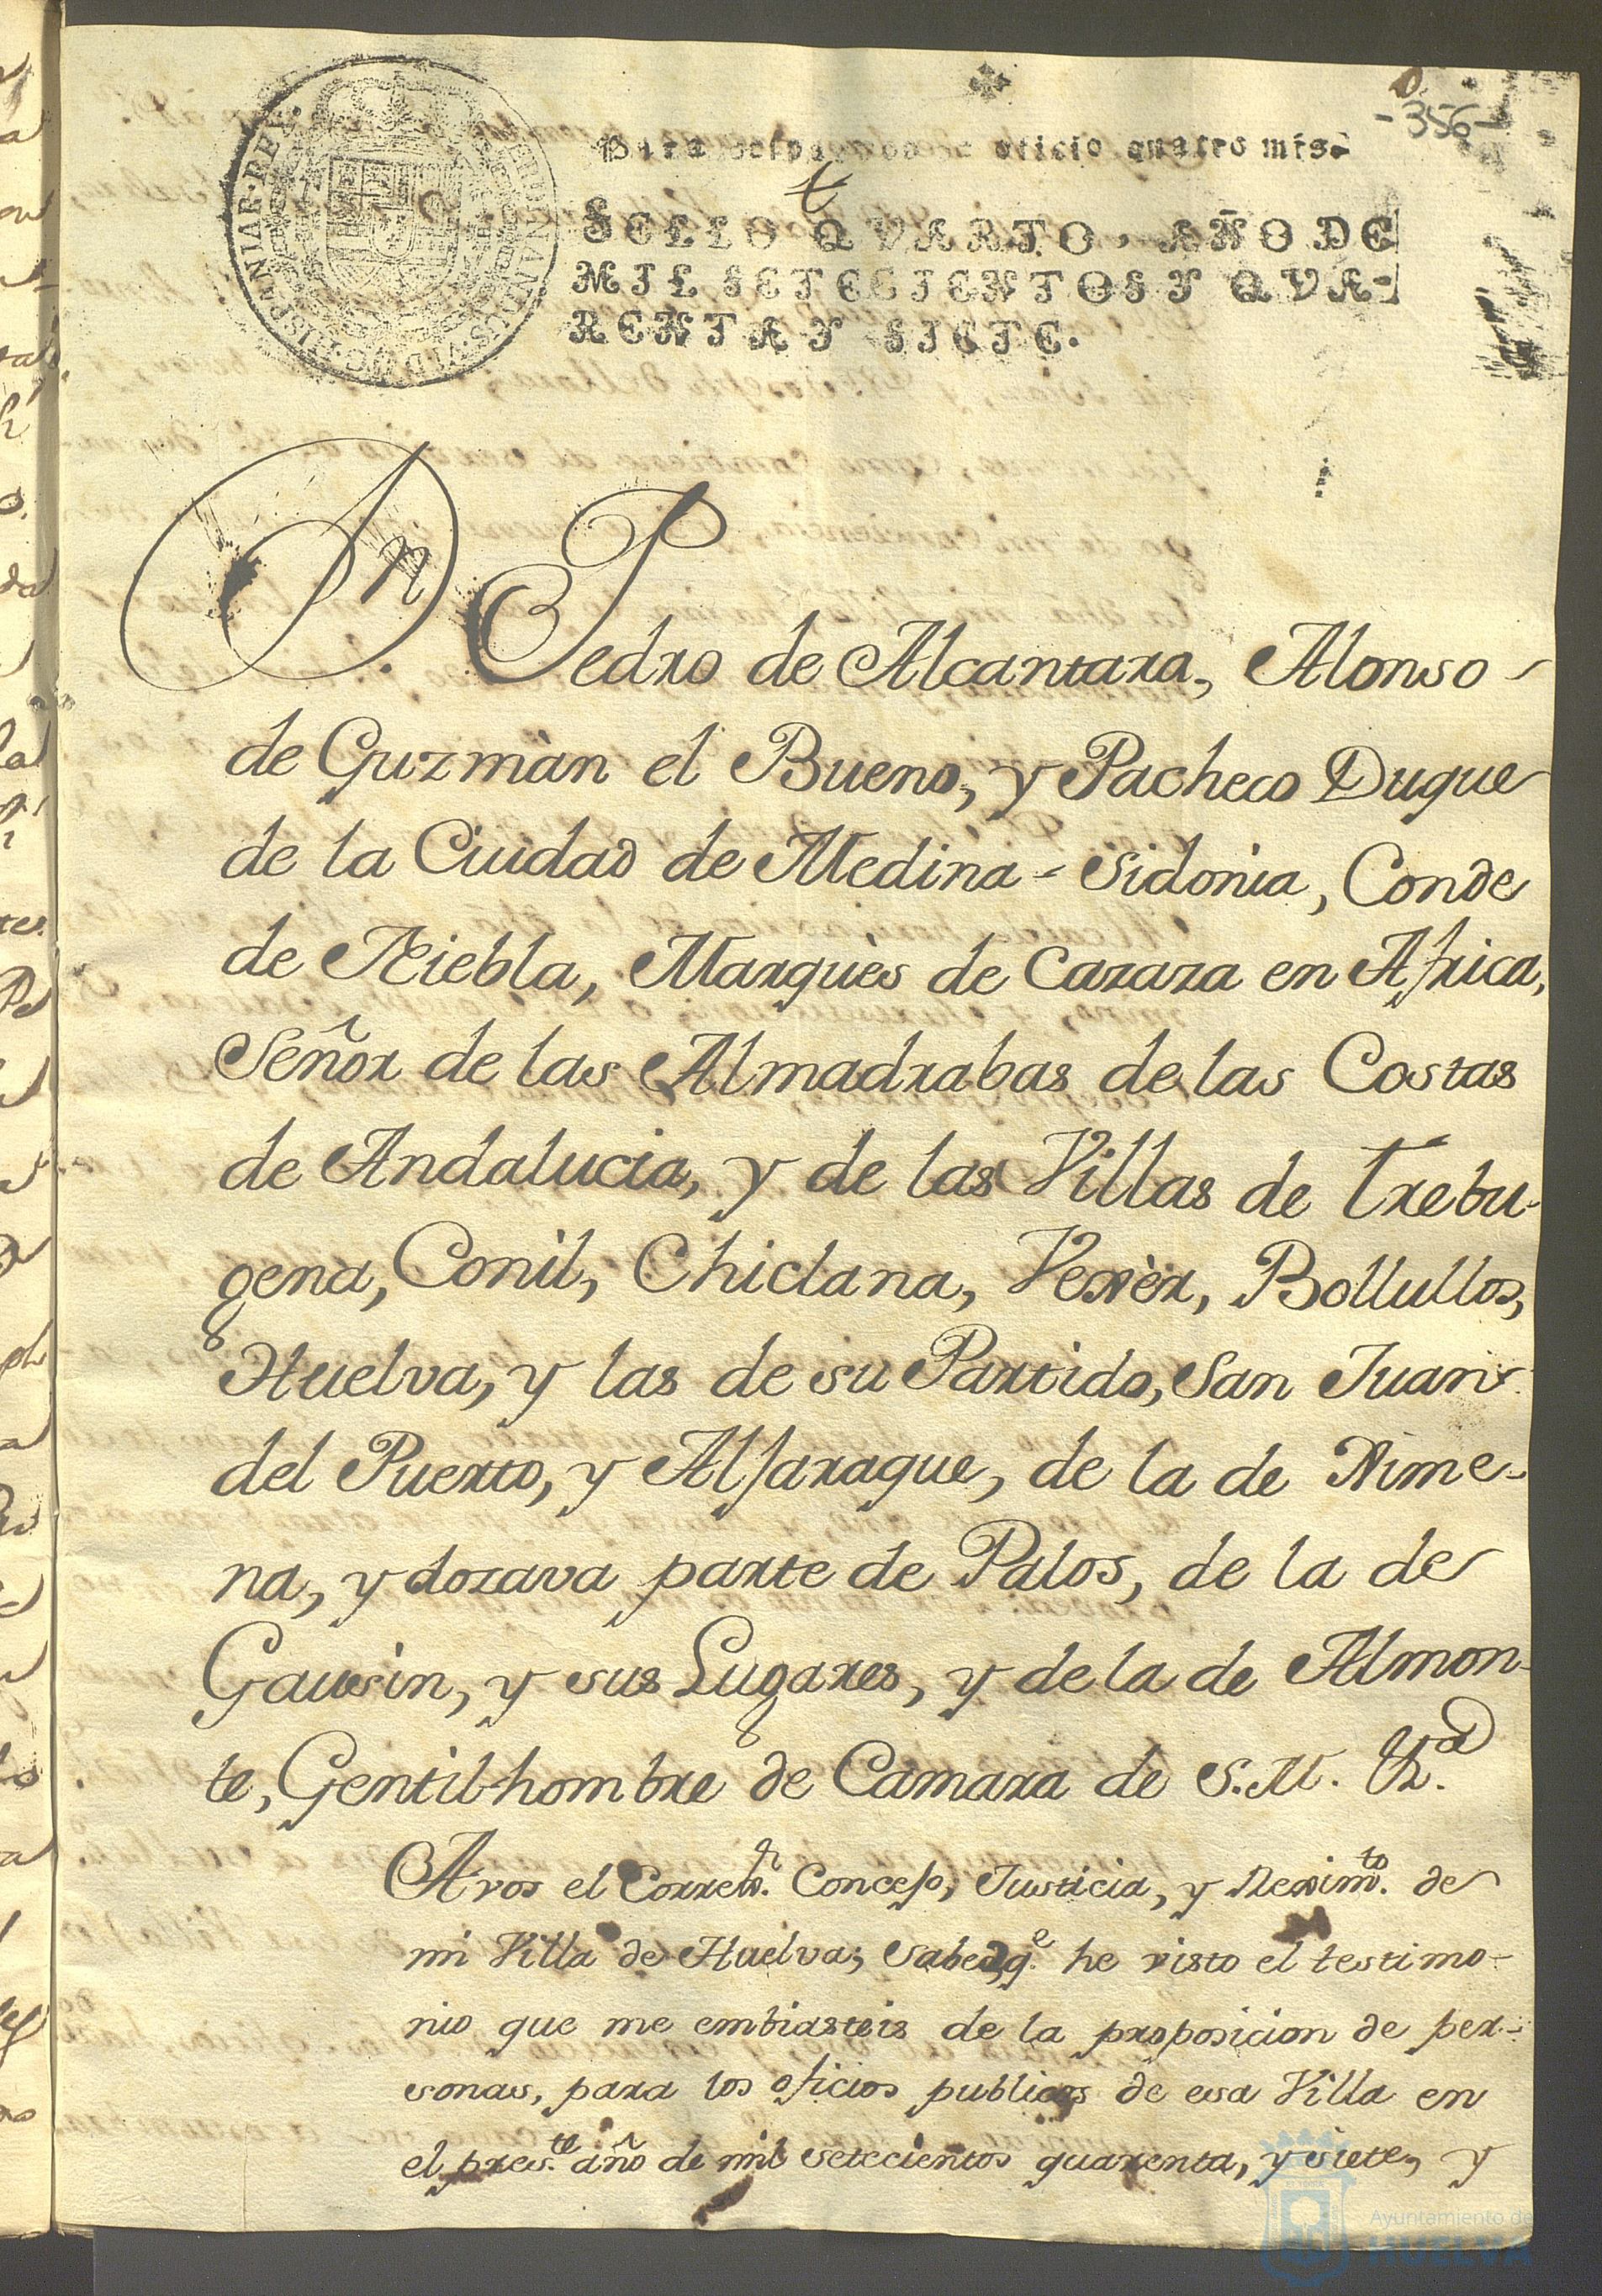 -356-
oficio quatro mrs.
SELLO QVARTO, AÑO DE
MIL SETECIENTOS Y QVA-
RENTA Y SIETE.
Dn. Pedro de Alcantara, Alonso
de Guzmàn el Bueno, y Pacheco Duque
de la Ciudad de Medina-Sidonia, Conde
de Niebla, Marquès de Cazaza en Africa,
Señor de las Almadrabas de las Costas
de Andalucia, y de las Villas de Trebu-
gena, Conil, Chiclana, Vexèr, Bollullos,
Huelva, y las de su Partido, San Juan
del Puerto, y Alfaraque, de la de Xime-
na, y dozava parte de Palos, de la de
Gausin, y sus Lugares, y de la de Almon-
te, Gentil-hombre de Camara de S.M. &a.
A vos el Correxr. Concejo, Justicia, y Reximto. de
mi Villa de Huelva; Sabed, qe. he visto el testimo-
nio que me embiasteis de la proposicion de per-
sonas, para los oficios publicos de esa Villa en
el preste. año de mil setecientos quarenta, y siete, y
Ayuntamiento de
HUELVA